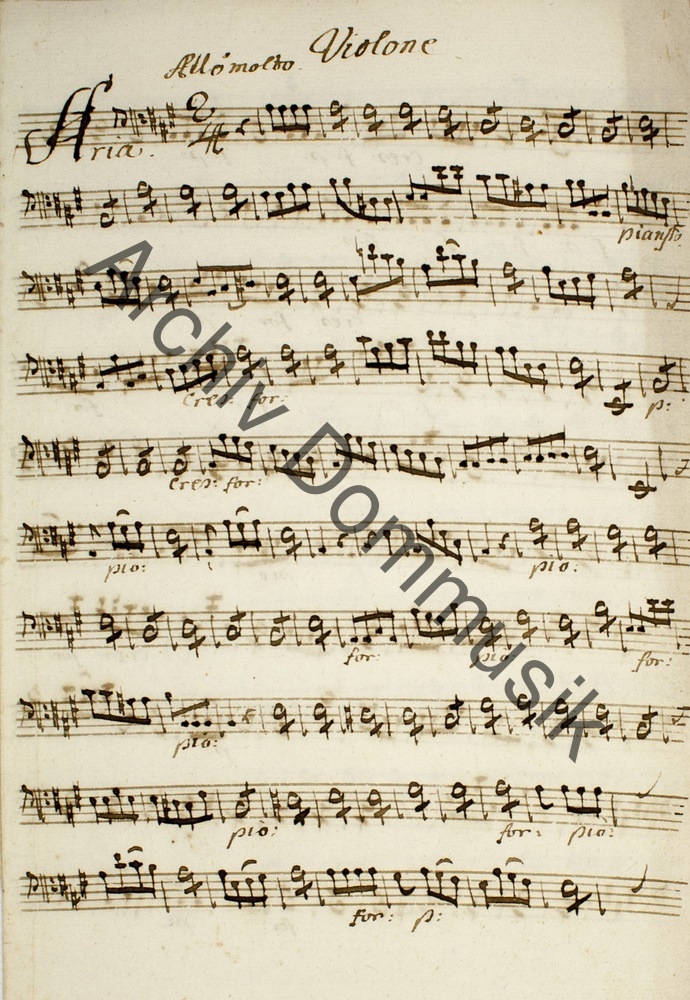 Violone
Allo molto
Aria.
2/4
pianssto
Cres: for: p:
Cres: for:
pio: pio:
for: pio for:
pio:
pio: for: pio:
for: p:
Archiv Dommusik